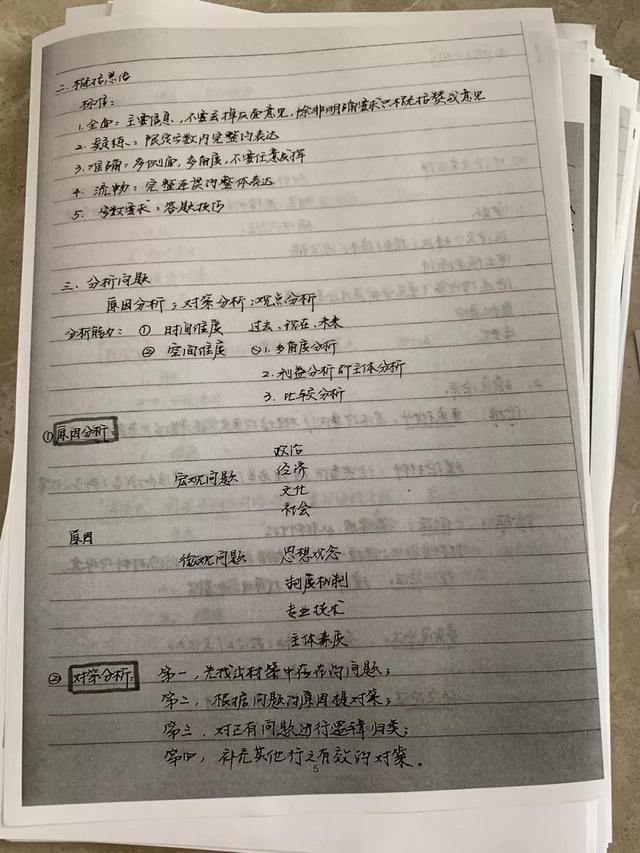 二.概括总结
标准:
1.全面:主要信息,不要去掉反面意见,除非明确要求只概括赞成意见
2.凝练:限定字数内完整的表达
3.准确:多侧面,多角度,不要任意发挥
4.流畅:完整连误的整体表达
5.字数要求:答题技巧
三.分析问题
原因分析;对策分析;观点分析
分析能力:① 时间维度 过去、现在、未来
② 空间维度 ②1.多角度分析
2.利益分析即主体分析
3.比较分析
①原因分析:
政治
宏观问题 经济
文化
社会
原因
微观问题 思想观念
制度机制
专业技术
主体素质
②对策分析: 第一,先找出材料中存在的问题;
第二,根据问题的原因提对策;
第三,对已有问题进行逻辑归类;
第四,补充其他行之有效的对策。
5